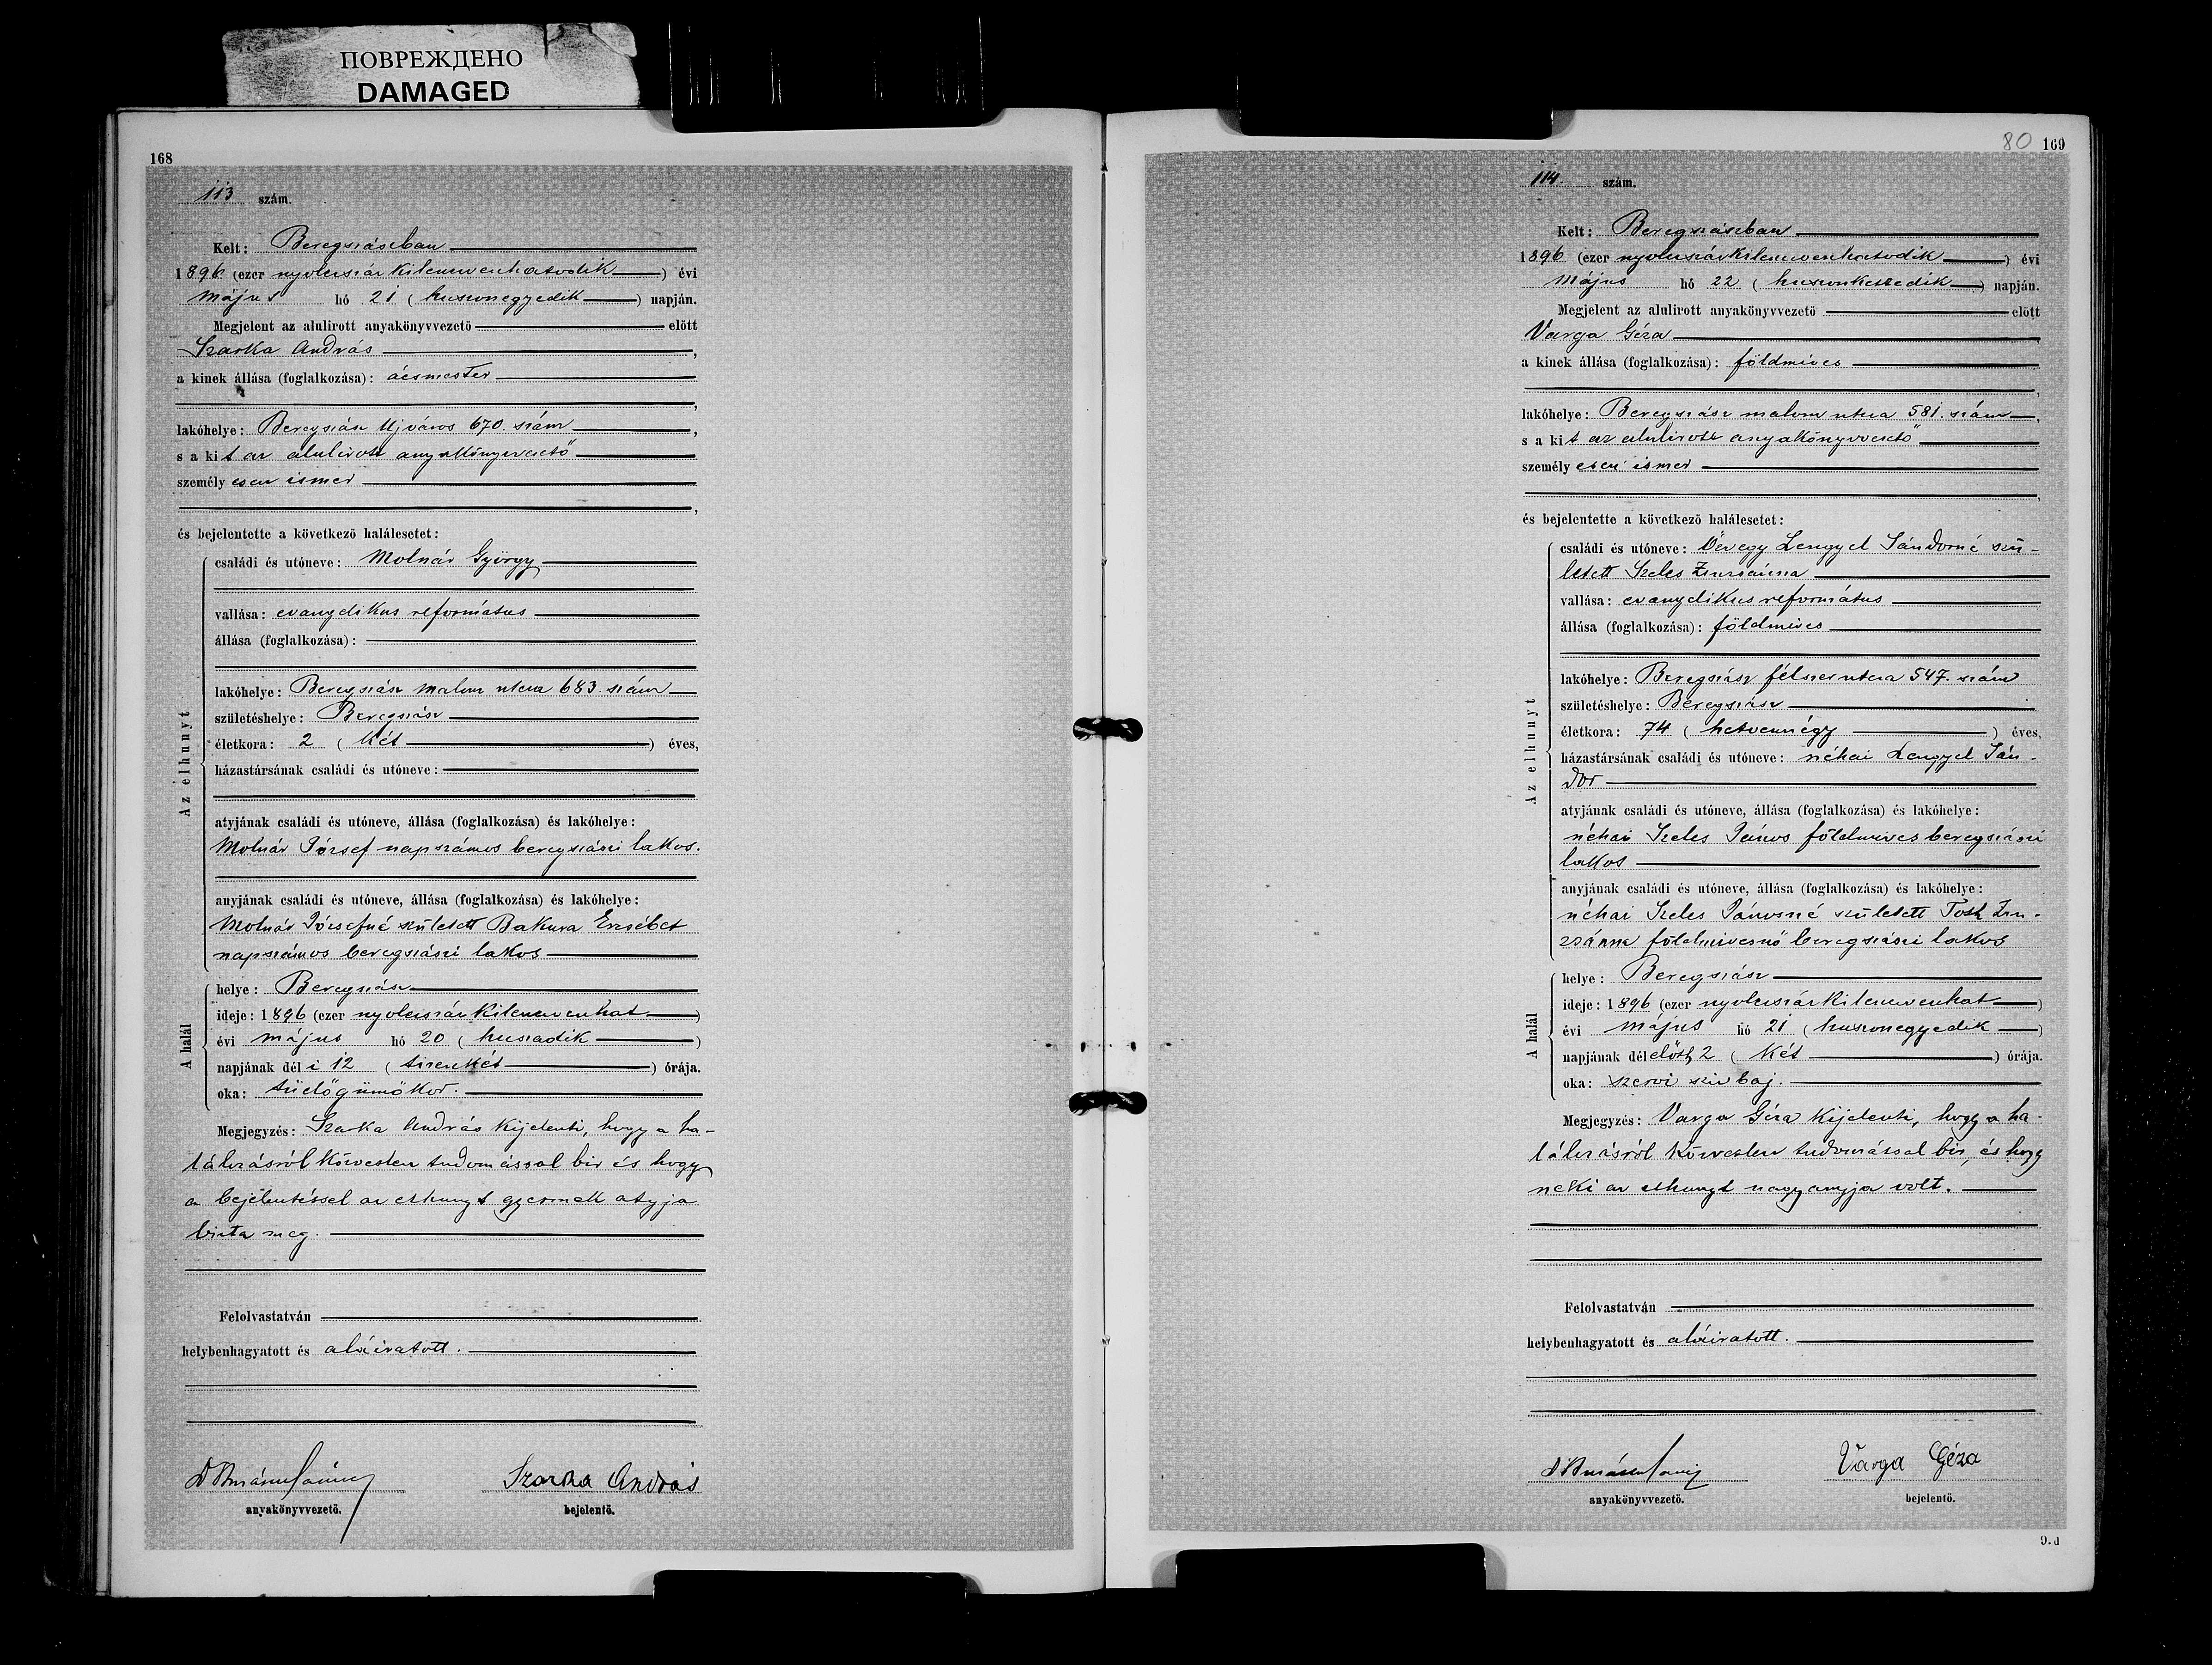 ПОВРЕЖДЕНО
DAMAGED
168
113 szám.
Kelt: Beregszászban
1896 (ezer nyolcszázkilencvenhatodik) évi
május hó 21 (huszonegyedik) napján.
Megjelent az alulirott anyakönyvvezető előtt
Szarka András,
a kinek állása (foglalkozása): ácsmester
,
lakóhelye: Beregszász Ujváros 670. szám,
s a kit az alulirott anyakönyvvezető
személyesen ismer
,
és bejelentette a következő halálesetet:
Az elhunyt
családi és utóneve: Molnár György
vallása: evangelikus református
állása (foglalkozása):
lakóhelye: Beregszász malom utcza 683. szám
születéshelye: Beregszász
életkora: 2 (két) éves,
házastársának családi és utóneve:
atyjának családi és utóneve, állása (foglalkozása) és lakóhelye:
Molnár József napszámos beregszászi lakos.
anyjának családi és utóneve, állása (foglalkozása) és lakóhelye:
Molnár Józsefné született Bakura Erzsébet
napszámos beregszászi lakos
A halál
helye: Beregszász
ideje: 1896 (ezer nyolcszázkilencvenhat)
évi május hó 20 (huszadik)
napjának déli 12 (tizenkét) órája.
oka: tüdőgümőkór.
Megjegyzés: Szarka András kijelenti, hogy a ha-
lálozásról közvetlen tudomással bir és hogy
a bejelentéssel az elhunyt gyermek atyja
bizta meg.
Felolvastatván
helybenhagyatott és aláiratott.
Szarka András
anyakönyvvezető. bejelentő.
80 169
114. szám.
Kelt: Beregszászban
1896 (ezer nyolcszázkilencvenhatodik) évi
május hó 22 (huszonkettedik) napján.
Megjelent az alulirott anyakönyvvezető előtt
Varga Géza
a kinek állása (foglalkozása): földmíves
,
lakóhelye: Beregszász malom utcza 581. szám,
s a kit az alulirott anyakönyvvezető
személyesen ismer
,
és bejelentette a következő halálesetet:
Az elhunyt
családi és utóneve: Özvegy Lengyel Sándorné szü-
letett Szeles Zsuzsánna
vallása: evangelikus református
állása (foglalkozása): földmíves
lakóhelye: Beregszász félszer utcza 547. szám
születéshelye: Beregszász
életkora: 74 (hetvennégy) éves,
házastársának családi és utóneve: néhai Lengyel Sán-
dor
atyjának családi és utóneve, állása (foglalkozása) és lakóhelye:
néhai Szeles János földmíves beregszászi
lakos
anyjának családi és utóneve, állása (foglalkozása) és lakóhelye:
néhai Szeles Jánosné született Toth Zsu-
zsánna földmivesnő beregszászi lakos
A halál
helye: Beregszász
ideje: 1896 (ezer nyolcszázkilencvenhat)
évi május hó 21 (huszonegyedik)
napjának délelőtt 2 (két) órája.
oka: szervi szivbaj.
Megjegyzés: Varga Géza kijelenti, hogy a ha-
lálozásról közvetlen tudomással bir, és hogy
neki az elhunyt nagyanyja volt.
Felolvastatván
helybenhagyatott és aláiratott.
Varga Géza
anyakönyvvezető. bejelentő.